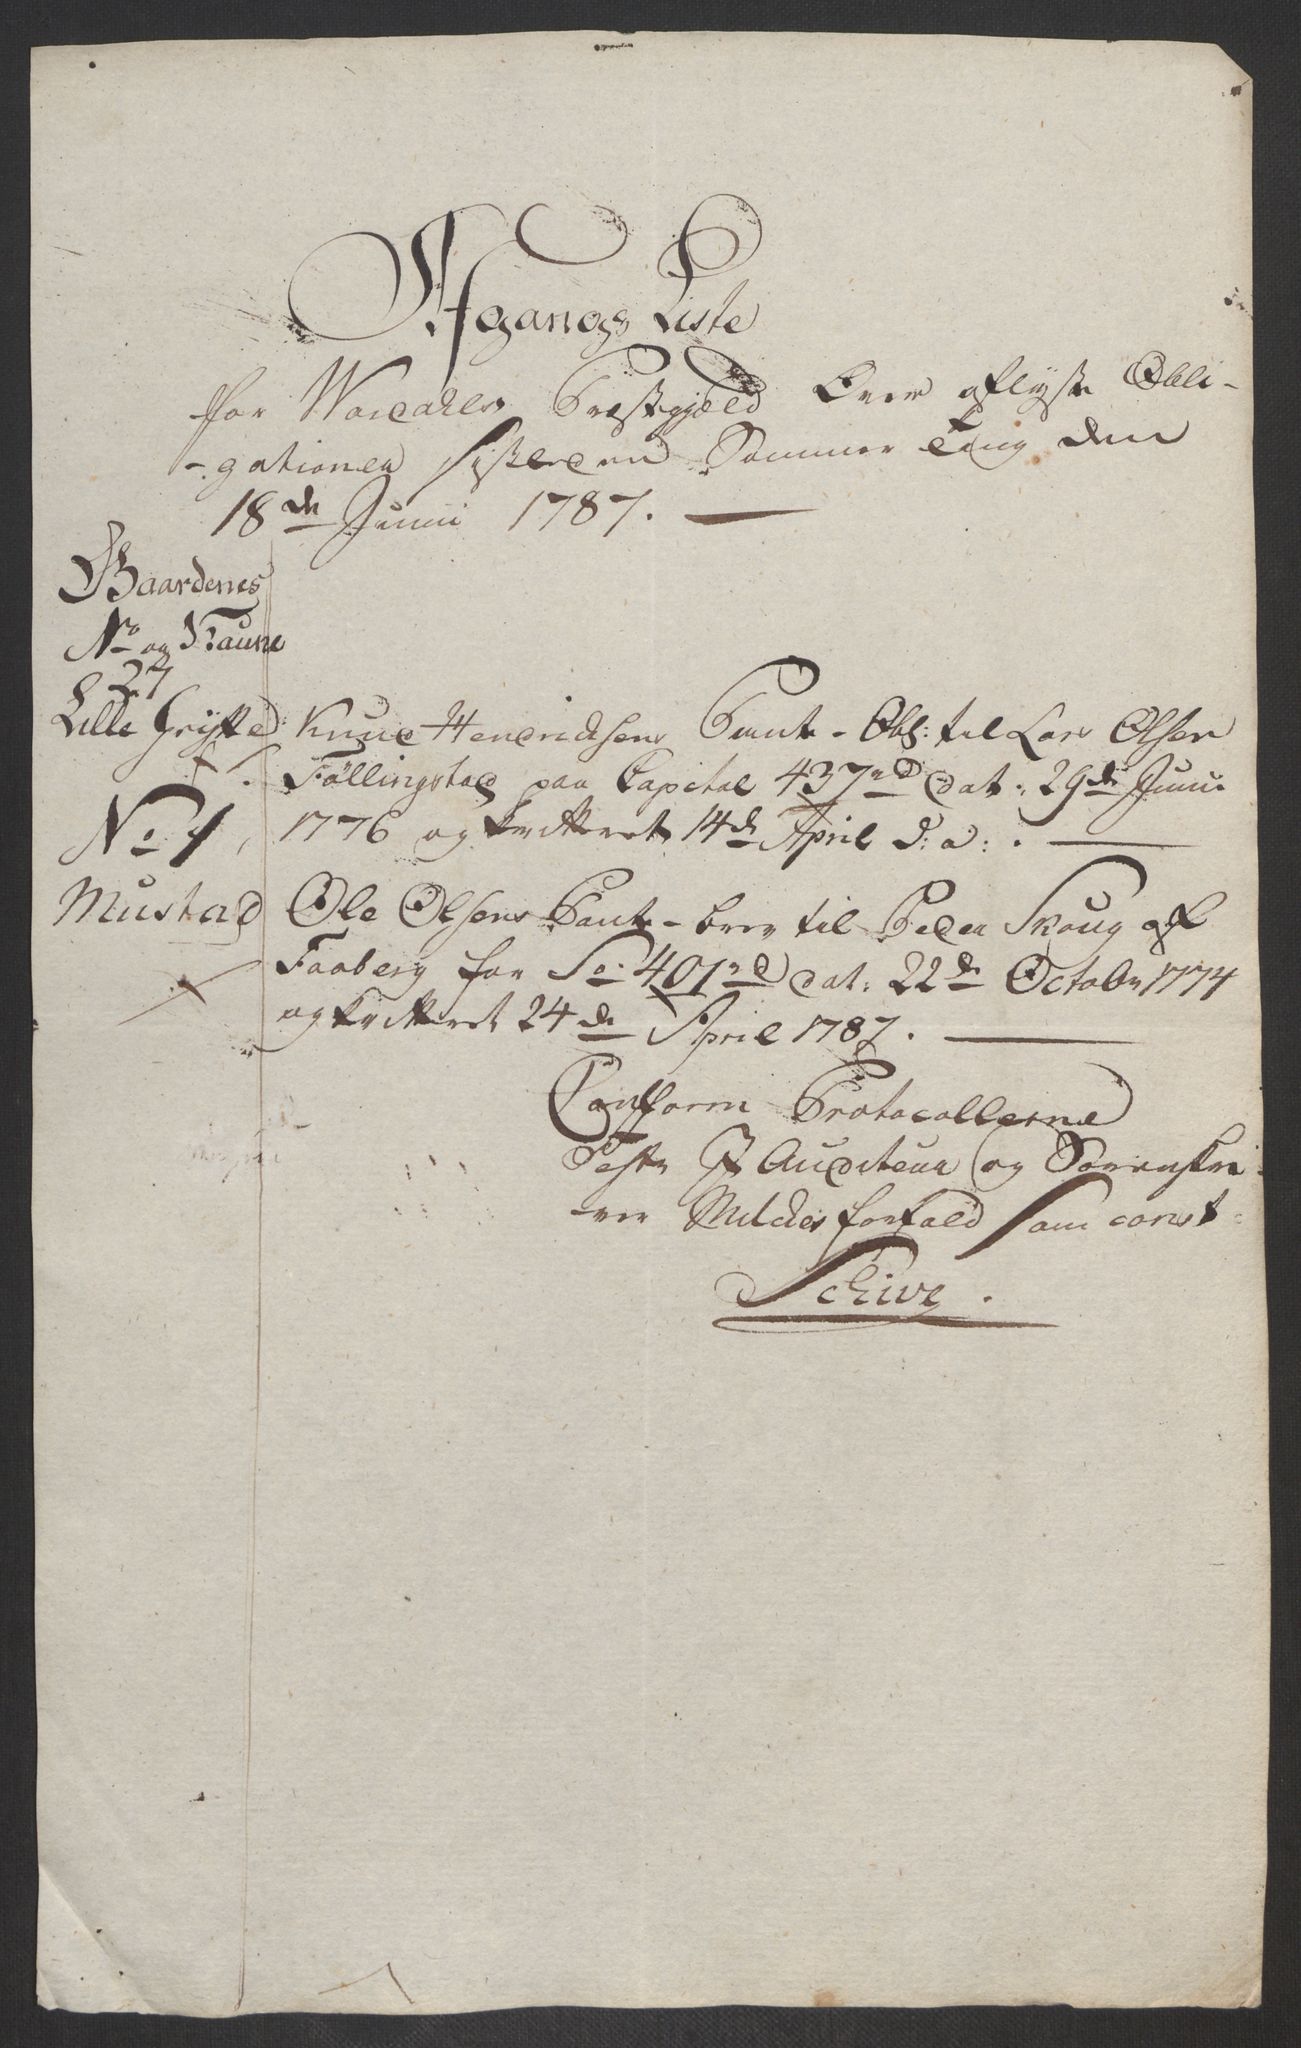 Afgangs Liste
for Wardahls Præstegjæld Over aflyste Obli-
-gationer sidste Sommer Ting den
18de Junii 1787.
Gaardenes
No og Naune
27
Lille Gryte
Knud Hendrichsens Pant-Obl: til Lars Olsen
Föllingstad paa Capital 437rd dat: 29de Junii
1776 og kvitteret 14de April d: a:.
No 1
Mustad
Ole Olsens Pant-brev til Peder Skoug af
Faaberg for So: 401rd dat: 22de Octobr 1774
og kvitteret 24de April 1787.
Confform Protocollerne
Test J Auditeur og Sorenskri
-ver Mildes forfald som const:
Schive.